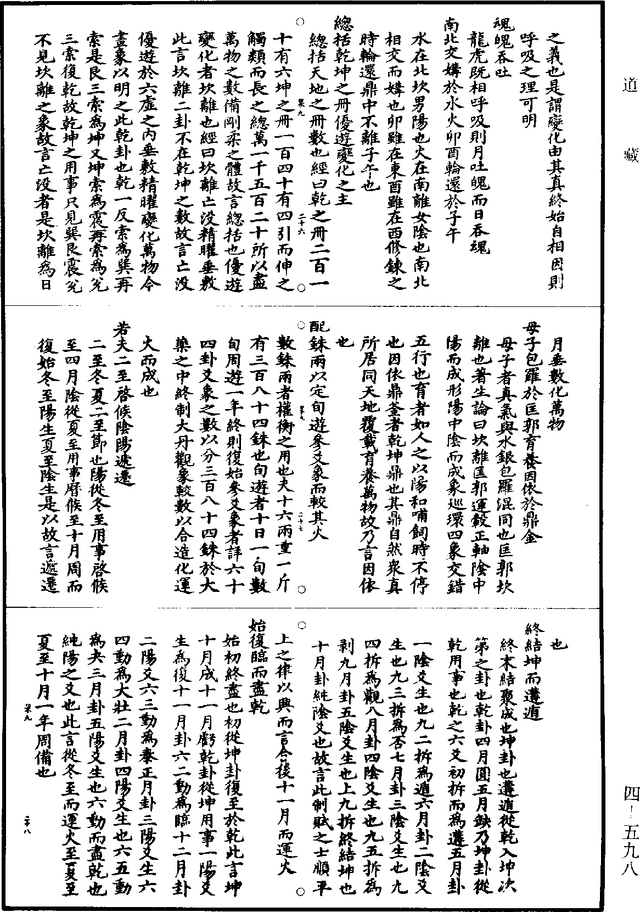 道藏
之義也是謂變化由其真終始自相因則
呼吸之理可明
魂魄吞吐
龍虎既相呼吸則月吐魄而日吞魂
南北交媾於水火卯酉輪還於子午
水在北坎男陽也火在南離女陰也南北
相交而媾也卯雖在東酉雖在西修鍊之
時輪還鼎中不離子午也
總括乾坤之冊優遊變化之主
總括天地之冊數也經曰乾之冊二百一
十有六坤之冊一百四十有四引而伸之
觸類而長之總萬一千五百二十所以盡
萬物之數備剛柔之體故言總括也優遊
變化者坎離也經曰坎離亡沒精曜垂敷
此言坎離二卦不在乾坤之數故言亡沒
優遊於六虛之內垂敷精曜變化萬物令
盡象以明之此乾卦也乾一反索為巽再
索是艮三索為坤又坤索為震再索為兌
三索復乾故乾坤之用事只見巽艮震兌
不見坎離之象故言亡沒者是坎離為日
月垂數化萬物
母子包羅於匡郭育養因依於鼎金
母子者真氣與水銀包羅混同也匡郭坎
離也著生論曰坎離匡郭運轂正軸陰中
陽而成形陽中陰而成象巡環四象交錯
五行也育者如人之以陽和哺飼時不停
也因依鼎釜者乾坤鼎也其鼎自然眾真
所居同天地覆載育養萬物故乃言因依
也
配銖兩以定旬遊參爻象而較其火
數銖兩者權衡之用也夫十六兩重一斤
有三百八十四銖也旬遊者十日一旬數
旬周遊一年終則復始參爻象者詳六十
四卦爻象之數以分三百八十四銖於大
藥之中終制大丹觀象較數以合造化運
火而成也
若夫二至啓候陰陽遞還
二至冬夏二至節也陽從冬至用事啓候
至四月陰從夏至用事曆候至十月周而
復始冬至陽生夏至陰生是以故言遞還
也
終結坤而遘遁
終末結聚成也坤卦也遘遁從乾入坤次
第之卦也乾卦四月圓五月缺乃坤卦從
乾用事也乾之六爻初拆而為遘五月卦
一陰爻生也九二拆為遁六月卦二陰爻
生也九三拆為否七月卦三陰爻生也九
四拆為觀八月卦四陰爻生也九五拆為
剥九月卦五陰爻生也上九拆終結坤也
十月卦純陰爻也故言此制賦之士順平
上之律以興而言令後十一月而運火
始復臨而盡乾
始初終盡也初從坤卦復至於乾此言坤
十月成十一月虧乾卦從坤用事一陽爻
生為復十一月卦六二動為臨十二月卦
二陽爻六三動為泰正月卦三陽爻生六
四動為大壯二月卦四陽爻生也六五動
為夬三月卦五陽爻生也六動而盡乾也
純陽之爻也此言從冬至而運火至夏至
夏至十月一年周備也
四－五九八